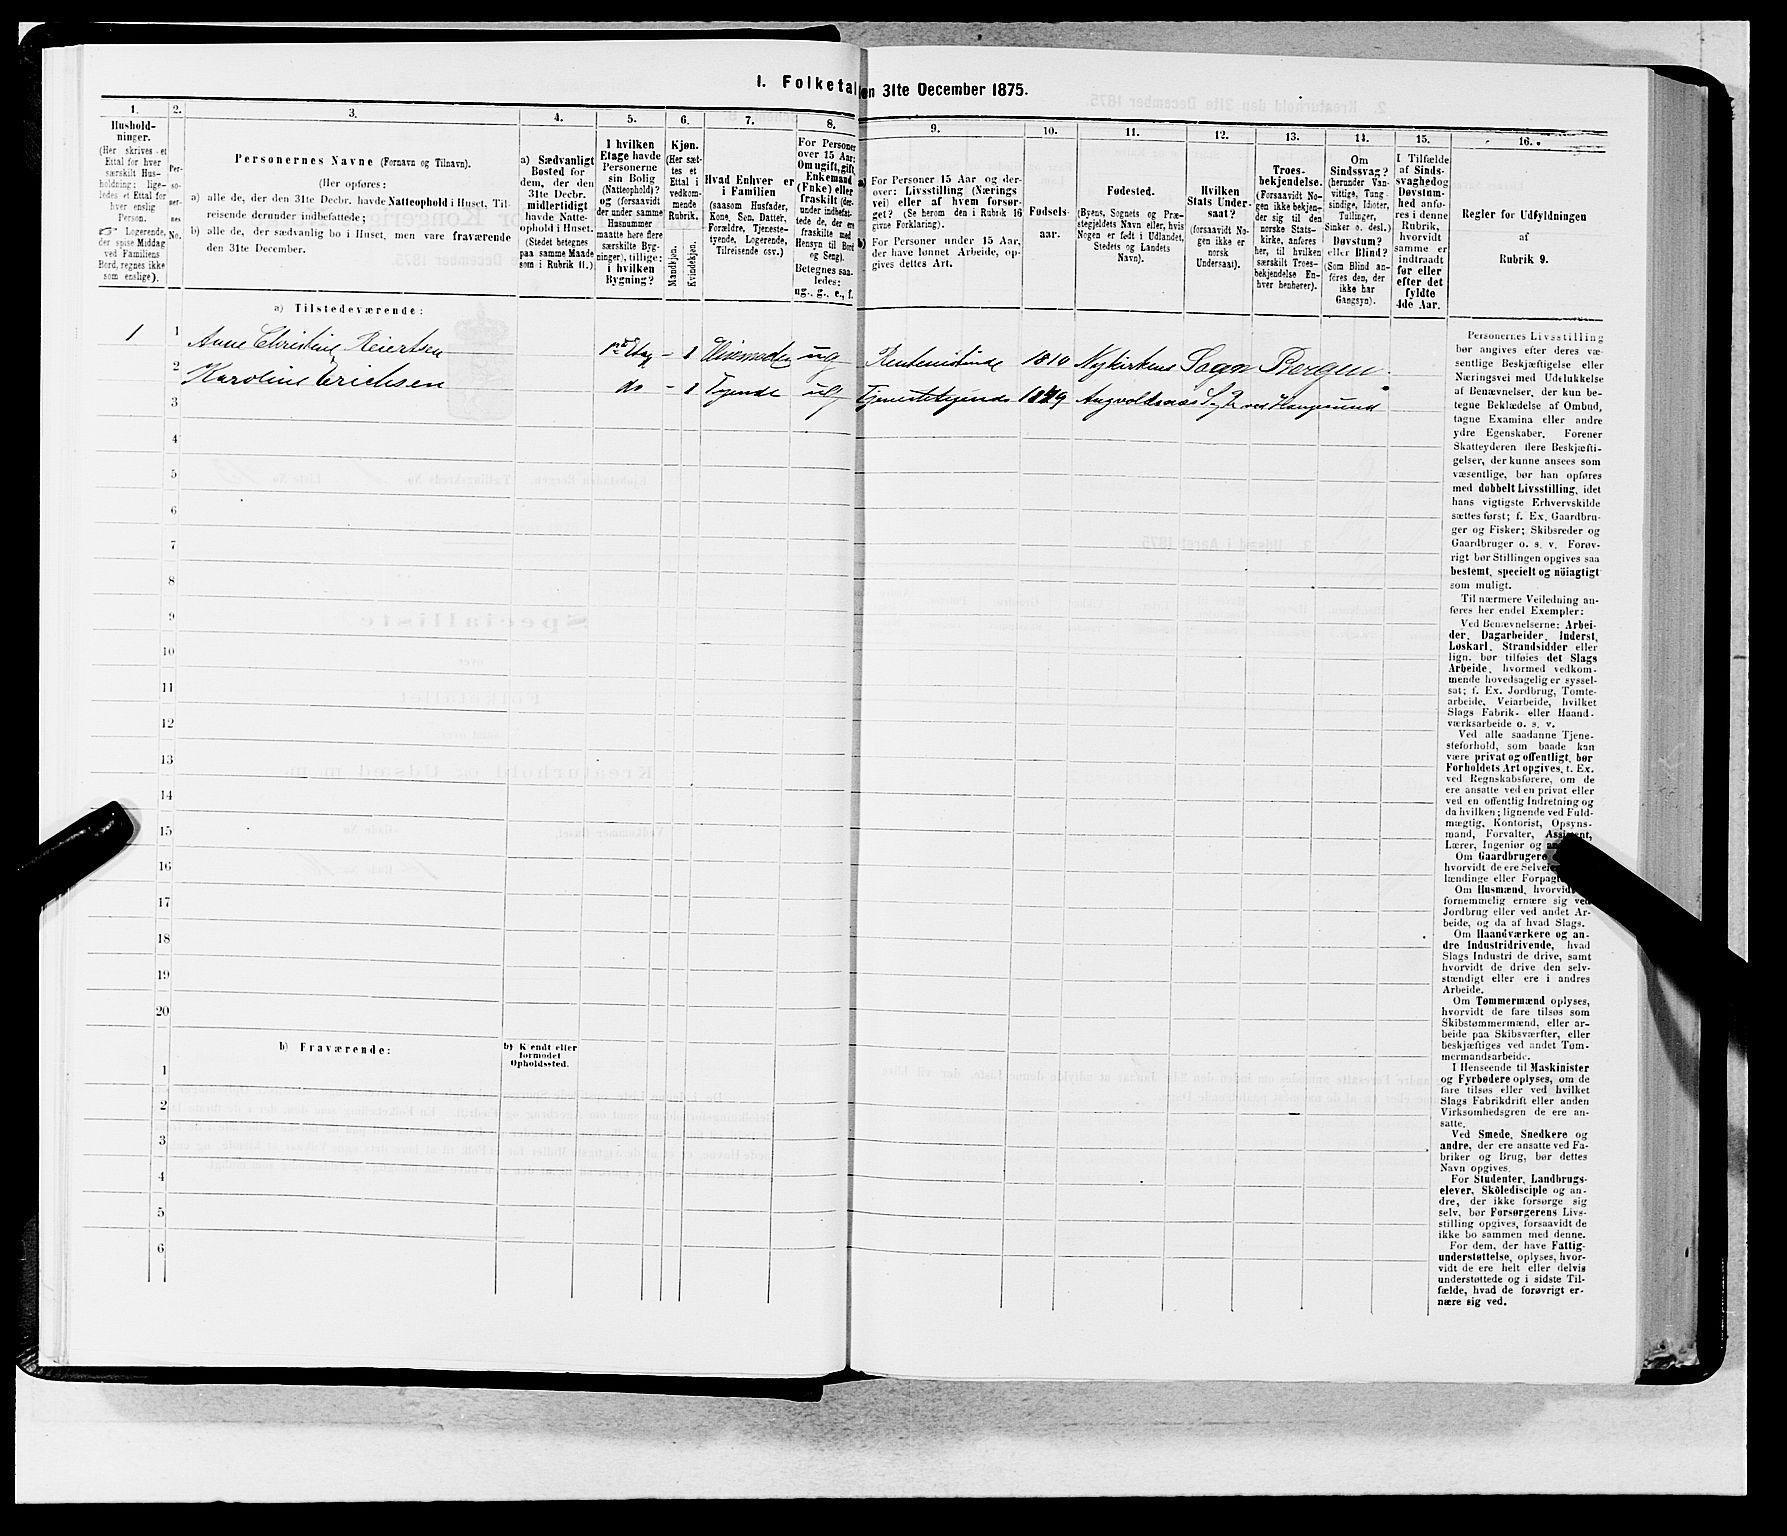 I. Folketal
en 31te December 1875.
1.
Hushold-
ninger.
(Her skrives et
Ettal for hver
særskilt Hus-
holdning; lige-
ledes et Ettal for
hver enslig
Person.
☞ Logerende,
der spise Middag
ved Familiens
Bord, regnes ikke
som enslige).
2.
Per-
so-
ner-
nes
No.
3.
Personernes Navne (Fornavn og Tilnavn).
(Her opføres:
a) alle de, der den 31te Decbr. havde Natteophold i Huset, Til-
reisende derunder indbefattede;
b) alle de, der sædvanlig bo i Huset, men vare fraværende
den 31te December.
4.
a) Sædvanligt
Bosted for
dem, der den
31te Decbr.
midlertidigt
havde Natte-
ophold i Huset.
(Stedet betegnes
paa samme Maade
som i Rubrik 11.)
5.
I hvilken
Etage havde
Personerne
sin Bolig
(Natteophold)?
og (forsaavidt
der under samme
Husnummer
matte høre flere
særskilte Byg-
ninger), tillige:
i hvilken
Bygning?
6.
Kjøn.
(Her sæt-
tes et
Ettal i
vedkom-
mende
Rubrik.
Mandkjøn.
Kvindekjøn.
7.
Hvad Enhver er
i Familien
(saasom Husfader,
Kone, Søn, Datter,
Forældre, Tjeneste-
tyende, Logerende,
Tilreisende osv.)
8.
For Personer
over 15 Aar:
Om ugift, gift,
Enkemand
(Enke) eller
fraskilt (der-
under indbefat-
tede de, der ere
fraskilte med
Hensyn til Bord
og Seng).
Betegnes saa-
ledes:
ug., g., e., f.
9.
a) For Personer 15 Aar og der-
over: Livsstilling (Nærings
vei) eller af hvem forsør-
get? (Se herom den i Rubrik 16
givne Forklaring).
b) For Personer under 15 Aar,
der have lønnet Arbeide, op-
gives dettes Art.
10.
Fødsels-
aar.
11.
Fødested.
(Byens, Sognets og Præ-
stegjeldets Navn eller, hvis
Nogen er født i Udlandet,
Stedets og Landets
Navn).
12.
Hvilken
Stats Under-
saat?
(forsaavidt No-
gen ikke er
norsk
Undersaat).
13.
Troes-
bekjendelse.
(Forsaavidt No-
gen ikke bekjen-
der sig til den
norske Stats-
kirke, anføres
her, til hvilken
særskilt Troes-
bekjendelse En-
hver henhører).
14.
Om
Sindssvag?
(herunder Van-
vittige, Tung-
sindige, Idioter,
Tullinger,
Sinker o. desl.)
Døvstum?
eller Blind?
(Som Blind an-
føres den, der
ikke har
Gangsyn).
15.
I Tilfælde
af Sinds-
svaghed og
Døvstum-
hed anfø-
res i denne
Rubrik,
hvorvidt
samme er
indtraadt
før eller
efter det
fyldte
4de Aar.
16.
Regler for Udfyldningen
af
Rubrik 9.
a) Tilstedeværende:
1 1 Anne Christine Reiertsen 1ste Etag - 1 ug Rentenistinde 1810 Nykirkens Sogn Bergen.
2 Karoline Erichsen do - 1 Tyende ug Tjenestetyende 1849 ved Haugesund
3
4
5
6
7
8
9
10
11
12
13
14
15
16
17
18
19
20
b) Fraværende:
b) Kjendt eller
formodet
Opholdssted.
1
2
3
4
5
6
Personernes Livsstilling
bør angives efter deres væ-
sentlige Beskjæftigelse eller
Næringsvei med Udelukkelse
af Benævnelser, der kun be-
tegne Beklædelse af Ombud,
tagne Examina eller andre
ydre Egenskaber. Forener
Skatteyderen flere Beskjæfti-
gelser, der kunne ansees som
væsentlige, bør han opføres
med dobbelt Livsstilling, idet
hans vigtigste Erhvervskilde
sættes først; f. Ex. Gaardbru-
ger og Fisker; Skibsreder og
Gaardbruger o. s. v. Forøv-
rigt bør Stillingen opgives saa
bestemt, specielt og nöiagtigt
som muligt.
Til nærmere Veiledning an-
føres her endel Exempler:
Ved Benævnelserne: Arbei-
der, Dagarbeider, Inderst,
Løskarl, Strandsidder eller
lign. bør tilføies det Slags
Arbeide, hvormed vedkom-
mende hovedsagelig er syssel-
sat; f. Ex. Jordbrug, Tomte-
arbeide, Veiarbeide, hvilket
Slags Fabrik- eller Haand-
værksarbeide o. s. v.
Ved alle saadanne Tjene-
steforhold, som baade kan
være privat og offentligt, bør
Forholdets Art opgives, f. Ex.
ved Regnskabsførere, om de
ere ansatte ved en privat eller
ved en offentlig Indretning og
da hvilken; lignende ved Fuld-
mægtig, Kontorist, Opsyns-
mand, Forvalter, Assistent,
Lærer, Ingeniør og
Om Gaardbrugere
hvorvidt de ere Selveie
lændinge eller Forpag
Om Husmænd, hvorvidt
fornemmelig ernære sig ved
Jordbrug eller ved andet Ar-
beide, og da af hvad Slags.
Om Haandværkere og an-
dre Industridrivende, hvad
Slags Industri de drive, samt
hvorvidt de drive den selv-
stændigt eller ere i andres
Arbeide.
Om Tømmermænd oplyses,
hvorvidt de fare tilsøs som
Skibstømmermænd, eller ar-
beide paa Skibsværfter, eller
beskjæftiges ved andet Tøm-
mermandsarbeide.
I Henseende til Maskinister
og Fyrbødere oplyses, om de
fare tilsøs eller ved hvilket
Slags Fabrikdrift eller anden
Virksomhedsgren de ere an-
satte.
Ved Smede, Snedkere og
andre, der ere ansatte ved Fa-
briker og Brug, bør dettes
Navn opgives.
For Studenter, Landbrugs-
elever, Skôledisciple og an-
dre, der ikke forsørge sig
selv, bør Forsørgerens Livs-
stilling opgives, forsaavidt de
ikke bo sammen med denne.
For dem, der have Fattig-
understøttelse, oplyses, hvor-
vidt de ere helt eller delvis
understøttede og i sidste Til-
fælde, hvad de forøvrigt er-
nære sig ved.